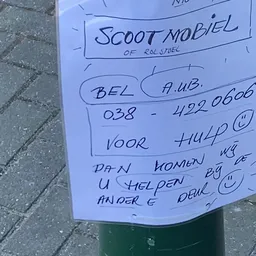 SCOOTMOBIEL
OF ROLSTOEL
BEL A.U.B.
038 - 4220606
VOOR HULP
DAN KOMEN WIJ
U HELPEN BIJ DE
ANDERE DEUR